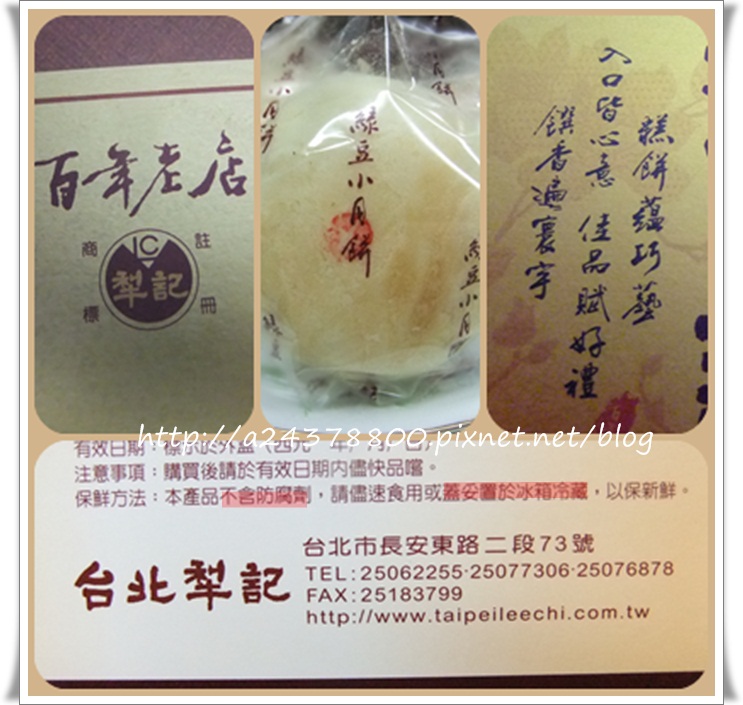 百年老店
商標
IC
犁記
註冊
綠豆小月餅
綠豆小月餅
月餅
綠豆小月餅
綠豆
糕餅蘊巧藝
入口皆心意 佳品賦好禮
饌香遍寰宇
http://a24378800.pixnet.net/blog
有效日期：標示於外盒（西元 年，月，日）
注意事項：購買後請於有效日期內儘快品嚐。
保鮮方法：本產品不含防腐劑，請儘速食用或蓋妥置於冰箱冷藏，以保新鮮。
台北犁記
台北市長安東路二段73號
TEL:25062255·25077306·25076878
FAX:25183799
http://www.taipeileechi.com.tw